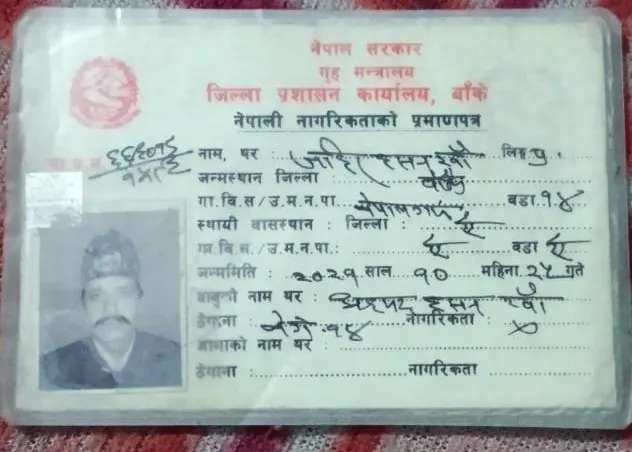 नेपाल सरकार
गृह मन्त्रालय
जिल्ला प्रशासन कार्यालय, बाँके
नेपाली नागरिकताको प्रमाणपत्र
नाम, थर : जाहिर हसन खाँ लिङ्ग पु.
जन्मस्थान जिल्ला : बाँके
गा.बि.स./उ.म.न.पा. नेपालगंज वडा.१४
स्थायी बासस्थान : जिल्ला : ऐ
गा.बि.स./उ.म.न.पा.: ऐ वडा ऐ
जन्ममिति : २०२१ साल १० महिना.२५ गते
बाबुको नाम थर : हसन खाँ
ठेगाना : १४ नागरिकता :
आमाको नाम थर :
ठेगाना : नागरिकता